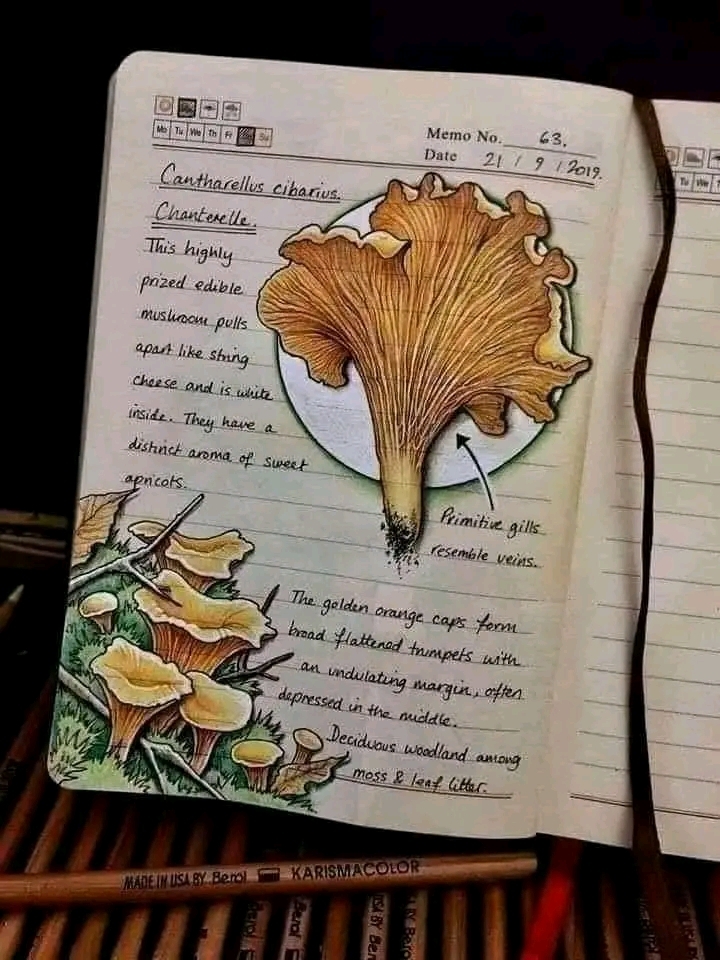 Mo Tu We Th Fr Su
Memo No. 63.
Date 21 / 9 / 2019.
Cantharellus cibarius.
Chanterelle.
This highly
prized edible
mushroom pulls
apart like string
cheese and is white
inside. They have a
distinct aroma of sweet
apricots.
Primitive gills
resemble veins.
The golden orange caps form
broad flattened trumpets with
an undulating margin, often
depressed in the middle.
Deciduous woodland among
moss & leaf litter.
Tu We T
MADE IN USA BY Berol KARISMACOLOR
Berol
Berol
USA BY Berol